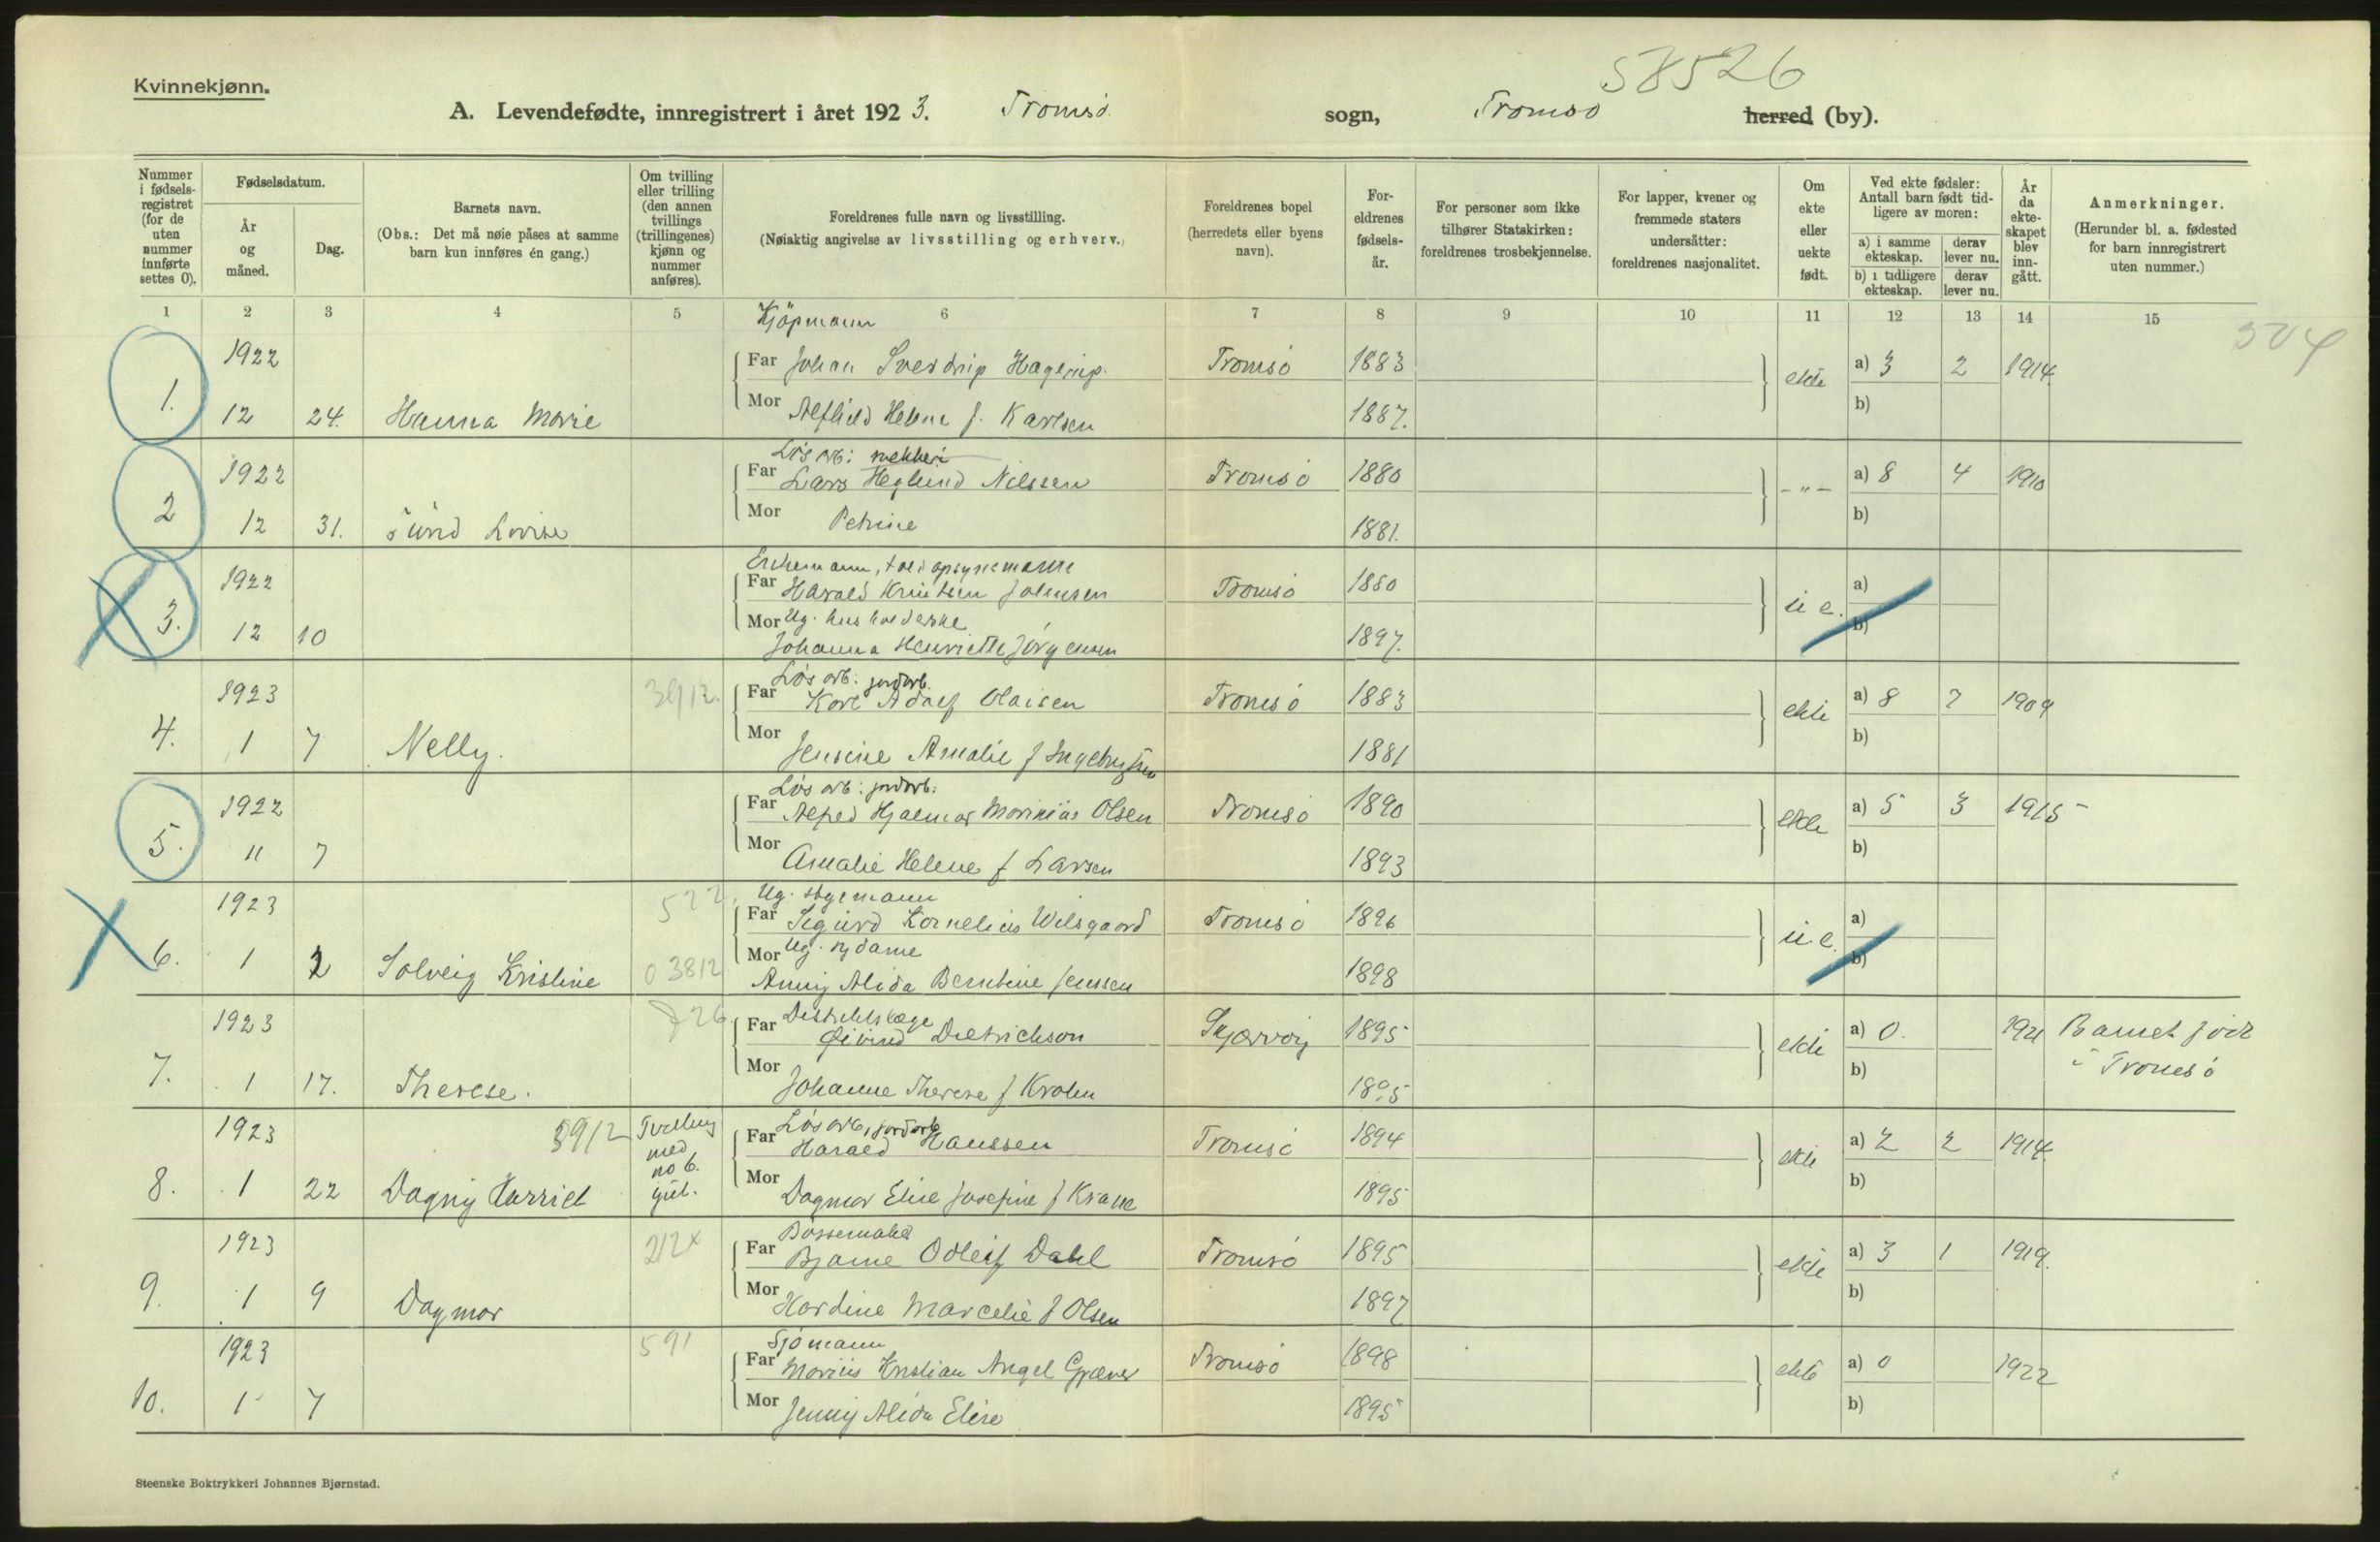 58526
Kvinnekjønn.
A. Levendefødte, innregistrert i året 1923. Tromsø sogn, Tromsø herred (by).
Nummer i fødsels-registret (for de uten nummer innførte settes 0).
Fødselsdatum.
År og måned.
Dag.
Barnets navn.
(Obs.: Det må nøie påses at samme barn kun innføres én gang.)
Om tvilling eller trilling (den annen tvillings (trillingenes) kjønn og nummer anføres).
Foreldrenes fulle navn og livsstilling.
(Nøiaktig angivelse av livsstilling og erhverv.)
Foreldrenes bopel (herredets eller byens navn).
For-eldrenes fødsels-år.
For personer som ikke tilhører Statskirken: foreldrenes trosbekjennelse.
For lapper, kvener og fremmede staters undersåtter: foreldrenes nasjonalitet.
Om ekte eller uekte født.
Ved ekte fødsler: Antall barn født tid-ligere av moren:
a) i samme ekteskap.
derav lever nu.
b) i tidligere ekteskap.
derav lever nu.
År da ekte-skapet blev inn-gått.
Anmerkninger.
(Herunder bl. a. fødested for barn innregistrert uten nummer.)
1 2 3 4 5 6 7 8 9 10 11 12 13 14 15
504
Kjöpmann
1922 Far Johan Sverdrup Hagerup. Tromsø 1883 ekte a) 3 2 1914.
1. 12 24. Hanna Marie Mor Alfhild Helene f. Karlsen 1887. b)
Løs arb:
1922 Far Lars Heglund Nilssen Tromsø 1880 -"- a) 8 4 1910
2 12 31. Lovise Mor Petrine 1881. b)
Enkemann, toldopsynsmann
1922 Far Harald Knutsen Johnsen Tromsø 1880 u e. a)
Mor Ug. husholderske
3. 12 10 Johanna Henriette Jörgensen 1897. b)
Løs arb. jordarb.
1923 Far Karl Adolf Olaisen Tromsø 1883 ekte a) 8 7 1909
4. 1 7 Nelly. Mor Jensine Amalie f Ingebrigtsen 1881 b)
Løs arb: jordarb:
1922 Far Alfred Hjalmar Marinius Olsen Tromsø 1890 ekte a) 5 3 1915
5. 11 7 Mor Amalie Helene f Larsen 1893 b)
522. Ug. styrmann
1923 Far Sigurd Kornelius Wilsgaard Tromsø 1896 u.e. a)
Mor Ug. sydame
6. 1 2 Solveig Kristine 03812 Anny Alida Berntine Jenssen 1898 b)
726. Distriktslæge
1923 Far Øivind Dietrichson Skjærvøy 1895 ekte a) 0. 1921 Barnet født
7. 1 17. Therese. Mor Johanne Therese f Krohn 1895 b) i Tromsø
Løs arb, jordarb
1923 3912 Tvilling Far Harald Hanssen Tromsø 1894 ekte a) 2 2 1914.
med no 6. gut.
8. 1 22 Dagny Harriet Mor Dagmar Elise Josefine f Krane 1895 b)
Bøssemaker
1923 Far Bjarne Odleif Dahl Tromsø 1895 ekte a) 3 1 1919.
9. 1 9 Dagmar Mor Hardine Marcelie f Olsen 1897 b)
591 Sjömann
1923 Far Marius Kristian Angel Græner Tromsø 1898 ekte a) 0 1922
10. 1 7 Mor Jenny Alida Elise 1895 b)
Steenske Boktrykkeri Johannes Bjørnstad.